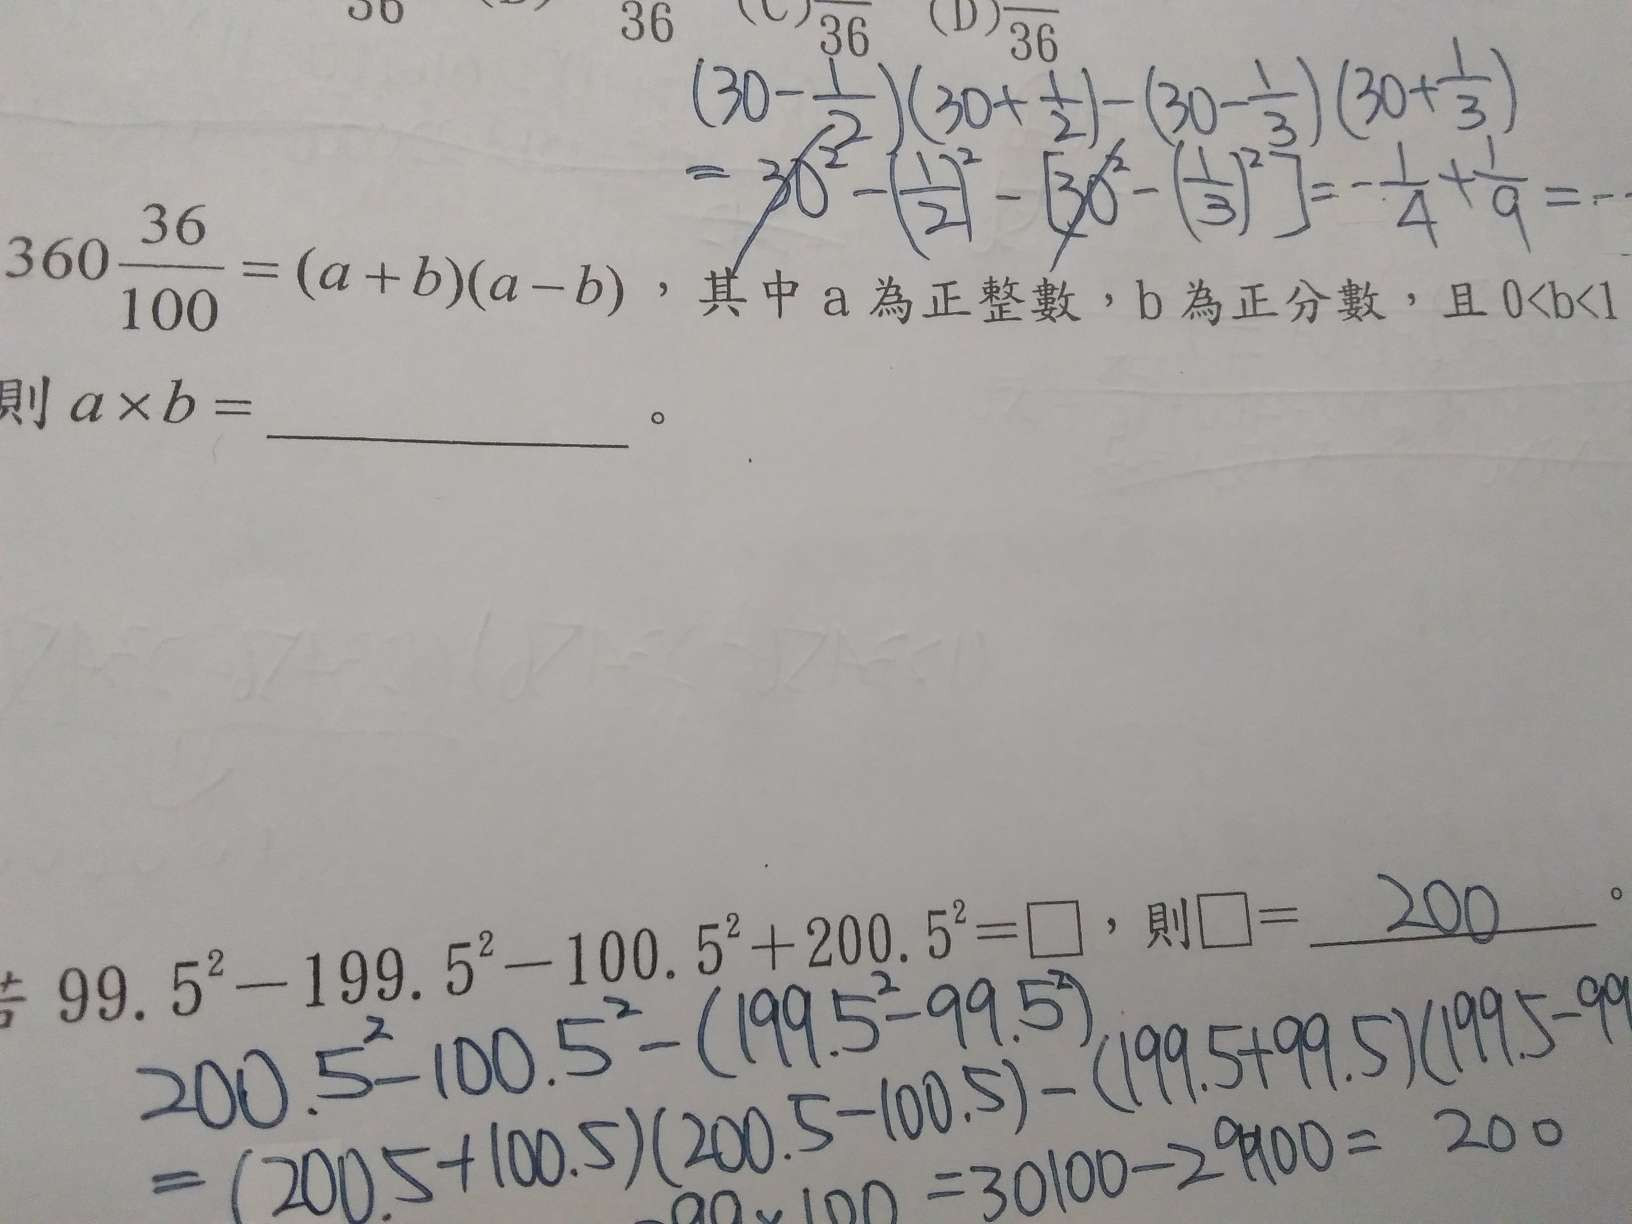 36 (B) 36 (C) 36 (D) 36
(30-1/2)(30+1/2)-(30-1/3)(30+1/3)
= 30²-(1/2)²-[30²-(1/3)²]=-1/4+1/9=--
360 36/100=(a+b)(a-b)，其中 a 為正整數，b 為正分數，且 0<b<1
則 a×b=＿＿＿＿。
若 99.5²-199.5²-100.5²+200.5²=□，則□= 200 。
200.5²-100.5²-(199.5²-99.5²)
=(200.5+100.5)(200.5-100.5)-(199.5+99.5)(199.5-99
99×100 =30100-29900= 200